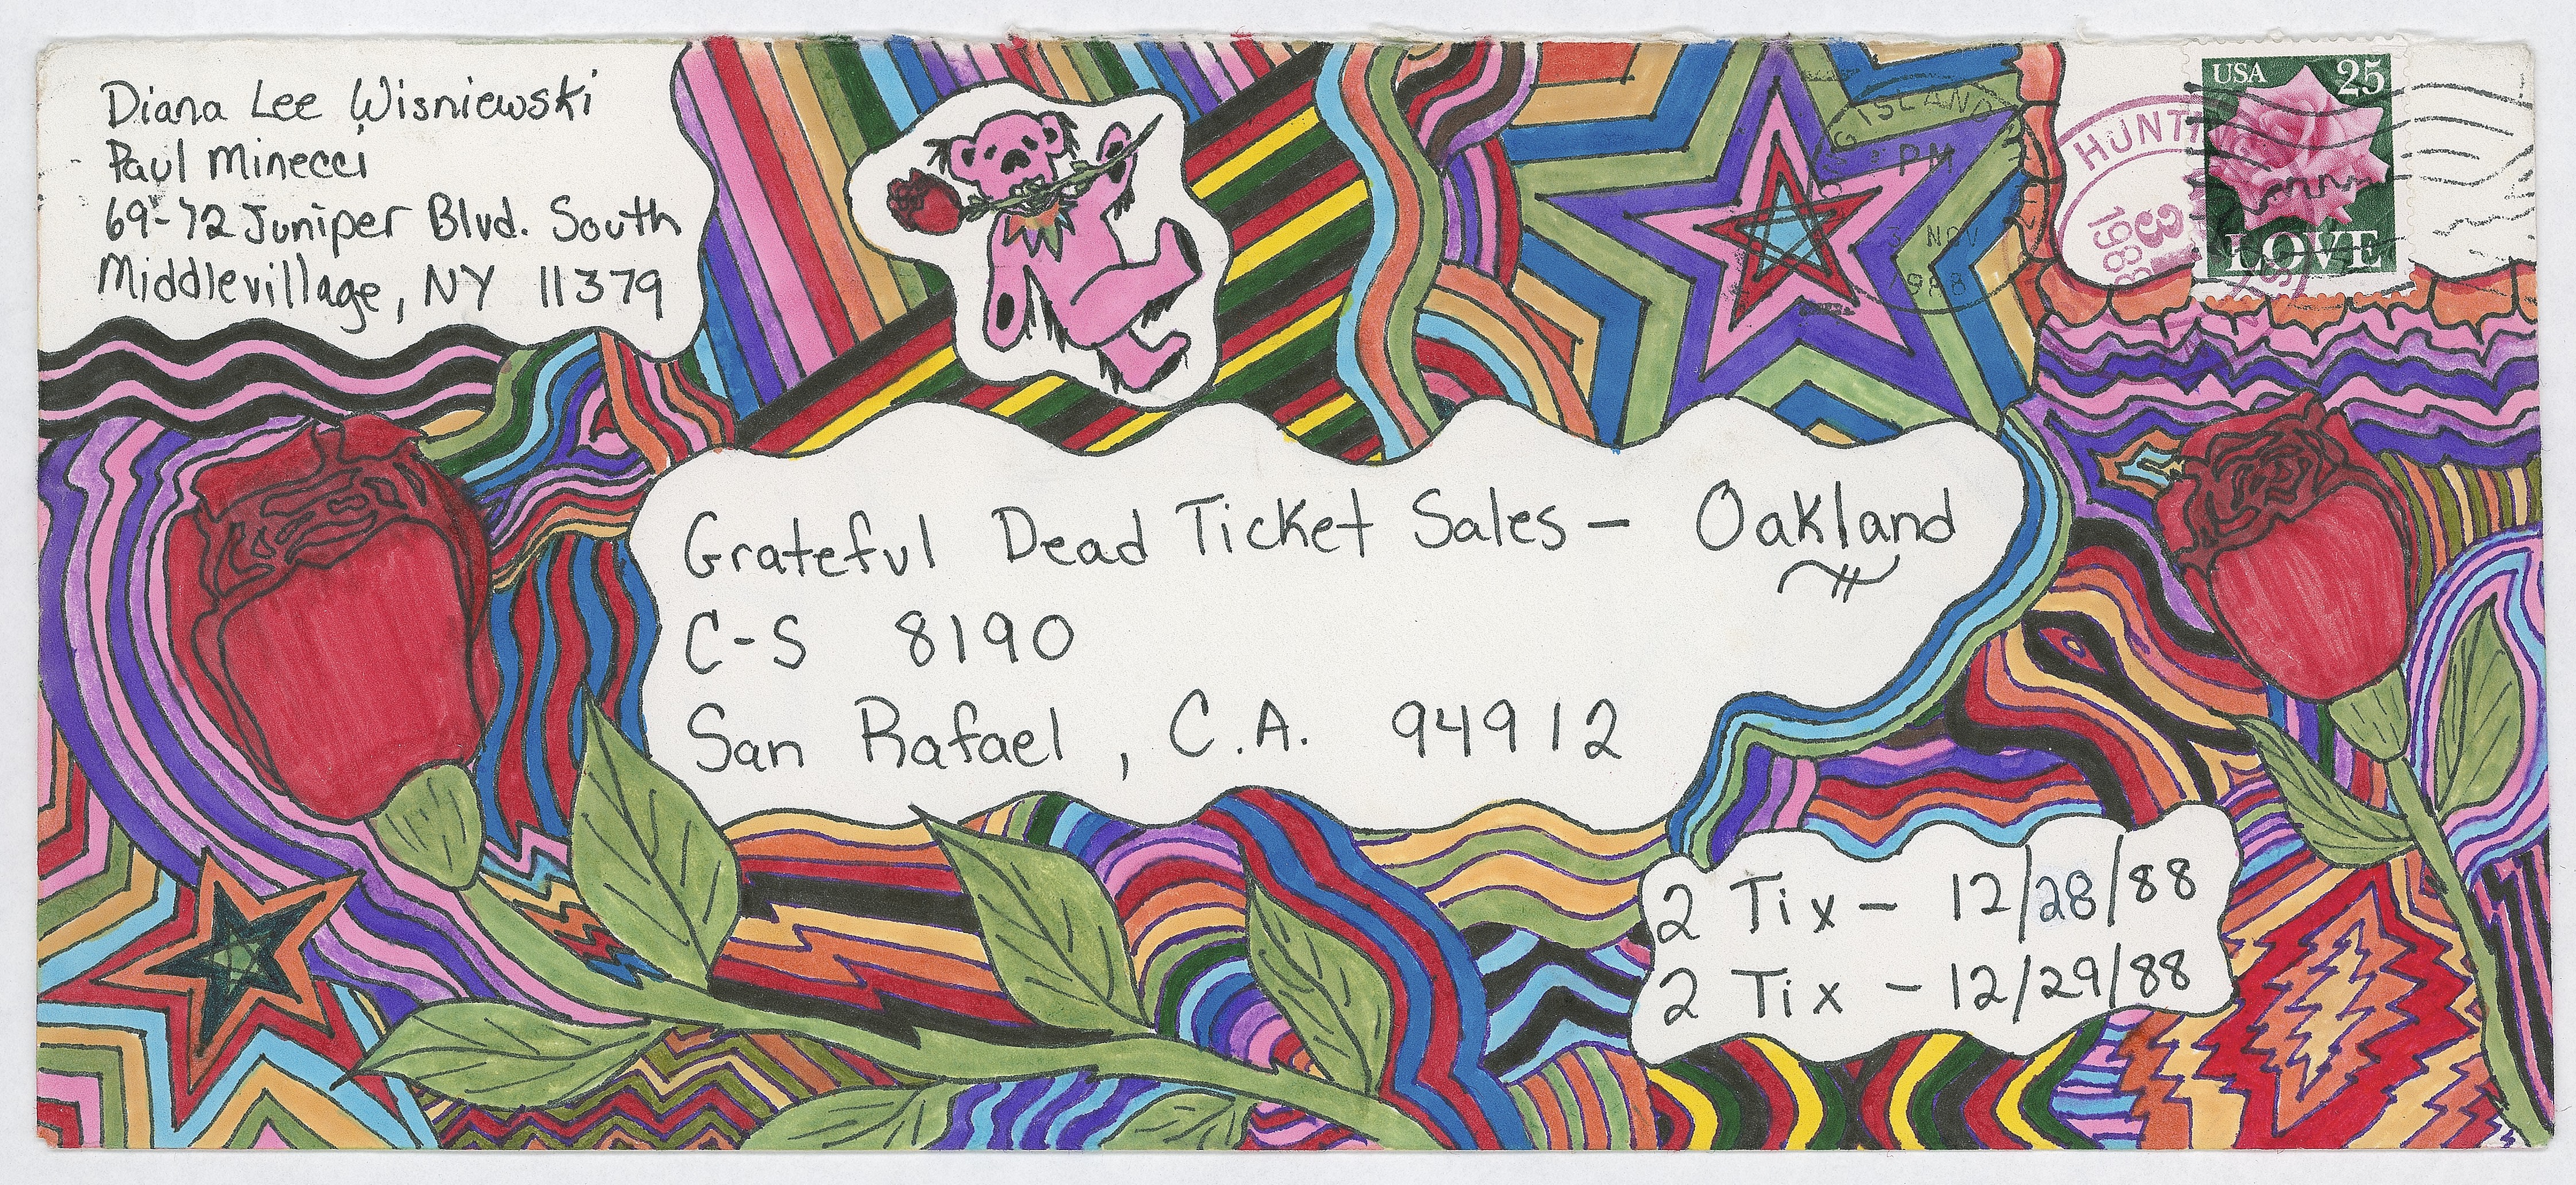 Diana Lee Wisniewski
Paul Minecci
69-72 Juniper Blvd. South
Middlevillage, NY 11379
USA 25
LOVE
HUNT
3
1988
ISLAND
PM
3 NOV
1988
Grateful Dead Ticket Sales - Oakland
C-S 8190
San Rafael, C.A. 94912
2 Tix - 12/28/88
2 Tix - 12/29/88